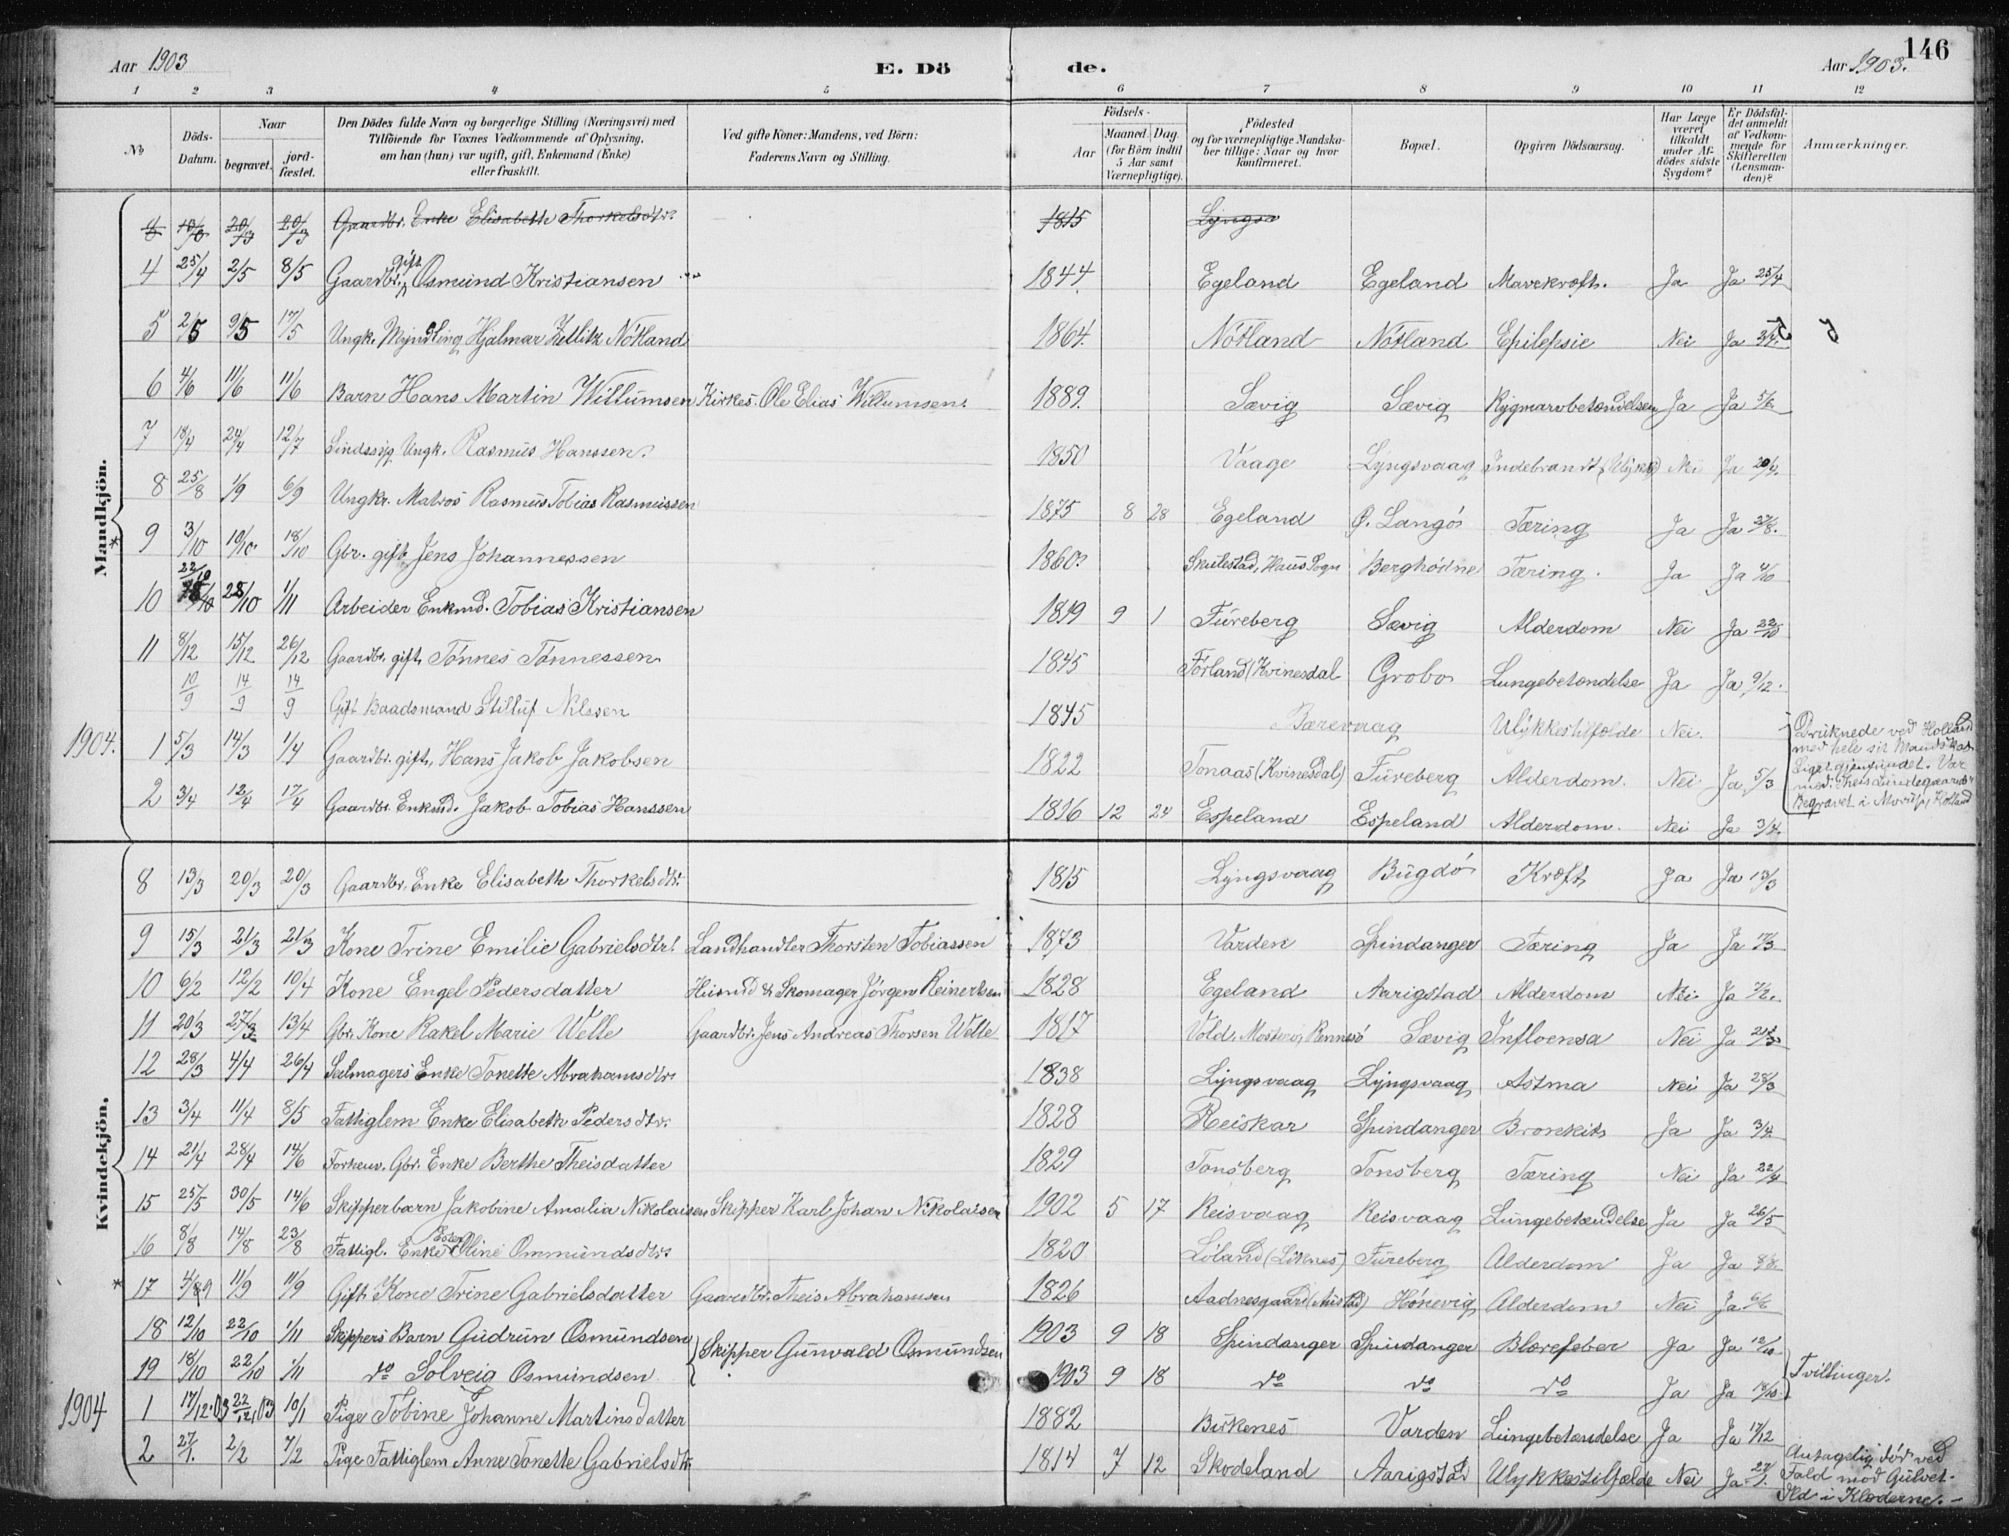 146
Aar 1903
E. Dö
de.
Aar 1903.
1 2 3 4 5 6 7 8 9 10 11 12
No
Döds-Datum.
Naar
begravet.
jord-fæstet.
Den Dödes fulde Navn og borgerlige Stilling (Næringsvei) med
Tilföiende for Voxnes Vedkommende af Oplysning,
om han (hun) var ugift, gift, Enkemand (Enke)
eller fraskilt.
Ved gifte Koner: Mandens, ved Börn:
Faderens Navn og Stilling.
Födsels-
Aar
Maaned. Dag.
(for Börn indtil
5 Aar samt
Værnepligtige).
Födested
og for værnepligtige Mandska-
ber tillige: Naar og hvor
konfirmeret.
Bopæl.
Opgiven Dödsaarsag.
Har Læge
været
tilkaldt
under Af-
dödes sidste
Sygdom?
Er Dödsfal-
det anmeldt
af Vedkom-
mende for
Skifteretten
(Lensman-
den)?
Anmærkninger.
Mandkjön.
8 20/3 20/3 Gaardbr. Enke Elisabeth Thorkelsdtr. 1815 Lyngs
4 25/4 2/5 8/5 Gaardbr. gift Osmund Kristiansen 1844. Egeland Egeland Mavekræft. Ja Ja 25/4
5 2/5 9/5 17/5 Ungk. Myndling Hjalmar Zetlitz Nötland 1864. Nötland Nötland Epilepsie Nei Ja
6 4/6 11/6 11/6 Barn Hans Martin Willumsen Kirkes. Ole Elias Willumsen 1889. Sævig Sævig Rygmarvbetændelsen Ja Ja 5/6
7 18/4 24/4 12/7 Sindssyg Ungk. Rasmus Hanssen. 1850 Vaage Lyngsvaag Indebrandt (Ulykke) Nei Ja 20/4.
8 25/8 1/9 6/9 Ungkr. Matros Rasmus Tobias Rasmussen 1875 8 28 Egeland Ø. Langö Tæring Ja Ja 27/8.
* 9 3/10 10/10. 18/10 Gbr. gift, Jens Johannessen 1860 Skulestad, Haus Sogn Berghödne Tæring. Ja Ja 4/10
10 22/10 28/10 1/11 Arbeider Enkmd. Tobias Kristiansen 1819 9 1 Fureberg Sævig Alderdom Nei Ja 22/10
11 8/12 15/12 26/12 Gaardbr. gift, Tönnes Tönnessen 1845 Förland (Kvinesdal Grobo Lungebetændelse Ja Ja 9/12.
10/9 14/9 14/9 Gift Baadsmand Stilluf Nilssen 1845 Bærevaag Ulykkestilfælde Nei.
Druknede ved Holland
med hele sit Mandskab
Liget gjenfundet. Var
Begravet i Holland
1904. 1 5/3 14/3 1/4 Gaardbr. gift, Hans Jakob Jakobsen 1822 Tonaas (Kvinesdal) Fureberg Alderdom. Nei Ja 5/3
2 3/4 12/4 17/4 Gaardbr. Enkmd. Jakob Tobias Hanssen 1816 12 24 Espeland Espeland Alderdom. Nei Ja 3/4.
Kvindekjön.
8 13/3 20/3 20/3 Gaardbr. Enke Elisabeth Thorkelsdtr. 1815 Lyngsvaag Bugdö Kræft Ja Ja 13/3
9 15/3 21/3 21/3 Kone Trine Emilie Gabrielsdtr. Landhandler Thorsten Tobiassen 1873 Varden Spindanger Tæring Ja Ja
10 6/2 12/2 10/4 Kone Engel Pedersdatter Husmd & Skomager Jörgen Reinertsen 1828 Egeland Aarigstad Alderdom Nei Ja 7/2.
11 20/3 27/3 13/4 Gbr. Kone Rakel Marie Welle Gaardbr. Jens Andreas Thorsen Welle 1817 Vold, Mosterö, Rennesö Sævig Influensa Nei Ja
12 28/3 4/4 26/4 Sælmagers Enke Tonette Abrahamsdtr. 1838 Lyngsvaag Lyngsvaag Astma Nei Ja 28/3
13 3/4 11/4 8/5 Fattiglem Enke Elisabeth Pedersdtr. 1828 Reiskar Spindanger Bronkit Ja Ja 3/4.
14 21/4 28/4 14/6 Forhenv. Gbr. Enke Berthe Theisdatter 1829 Tonsberg Tonsberg Tæring Nei Ja 22/4
15 25/5 30/5 14/6 Skipperbarn Jakobine Amalia Nikolaisen Skipper Karl Johan Nikolaisen 1902 5 17 Reisvaag Reisvaag Lungebetændelse Ja Ja 26/5
16 8/8 14/8 23/8 Fattigl. Enke Oline Ommundsdtr. 1820 Löland (Liknes) Fureberg Alderdom Ja Ja 8/8.
* 17 4/9 11/9 11/9 Gift Kone Trine Gabrielsdatter Gaardbr. Theis Abrahamsen 1826 Aadnesgaard (Austad) Hönevig Alderdom Nei Ja
18 12/10 22/10 1/11 Skippers Barn Gudrun Osmundsen Skipper Gunvald Osmundsen 1903 9 18 Spindanger Spindanger Blærefeber Ja Ja 12/10
19 18/10 22/10 1/11 do Solveig Osmundsen 1903 9 18 do do do Ja Ja 18/10 Tvillinger.
1904 1 17/12.03 22/12.03 10/1 Pige Tobine Johanne Martinsdatter 1882 Birkenes Varden Lungebetændelse Ja Ja 17/12
2 27/1. 2/2 7/2 Pige Fattiglem Anne Tonette Gabrielsdtr. 1814 7 12 Skodeland Aarigstad Ulykkestilfælde Nei Ja 27/1.
Antagelig död ved
Fald mod Gulvet.
Ild i Klæderne.